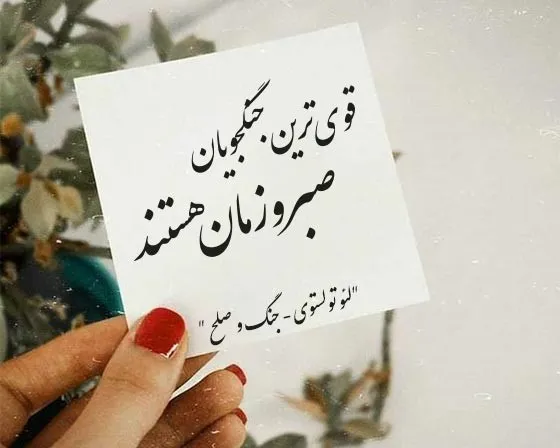 قوی ترین جنگجویان
صبر و زمان هستند
"لئو تولستوی - جنگ و صلح"